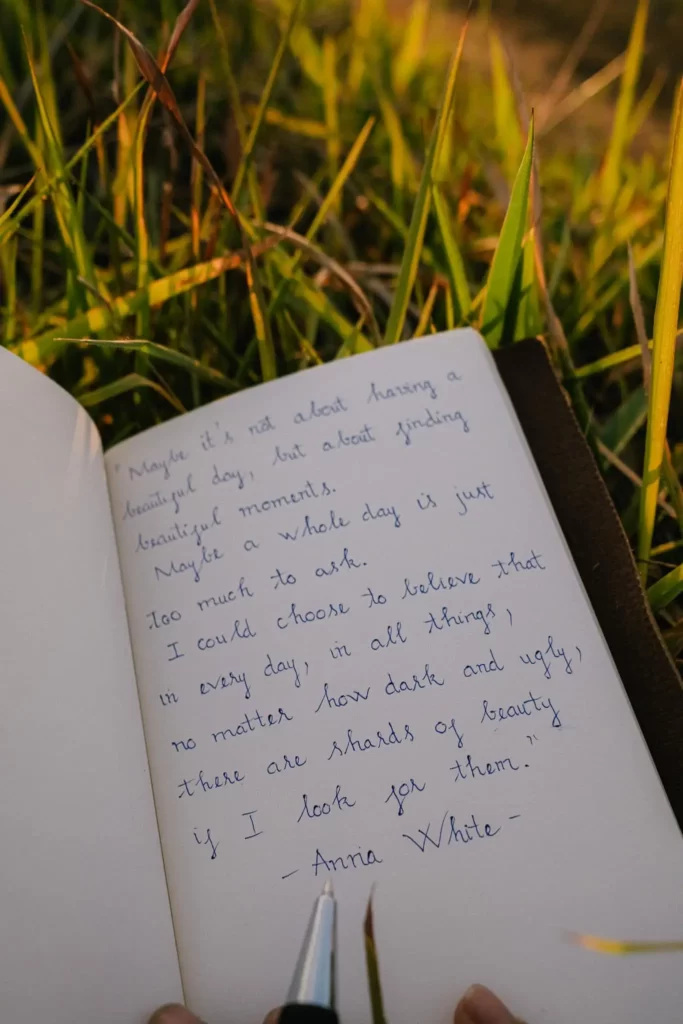 "Maybe it's not about having a
beautiful day, but about finding
beautiful moments.
Maybe a whole day is just
too much to ask.
I could choose to believe that
in every day, in all things,
no matter how dark and ugly,
there are shards of beauty
if I look for them."
- Anna White -